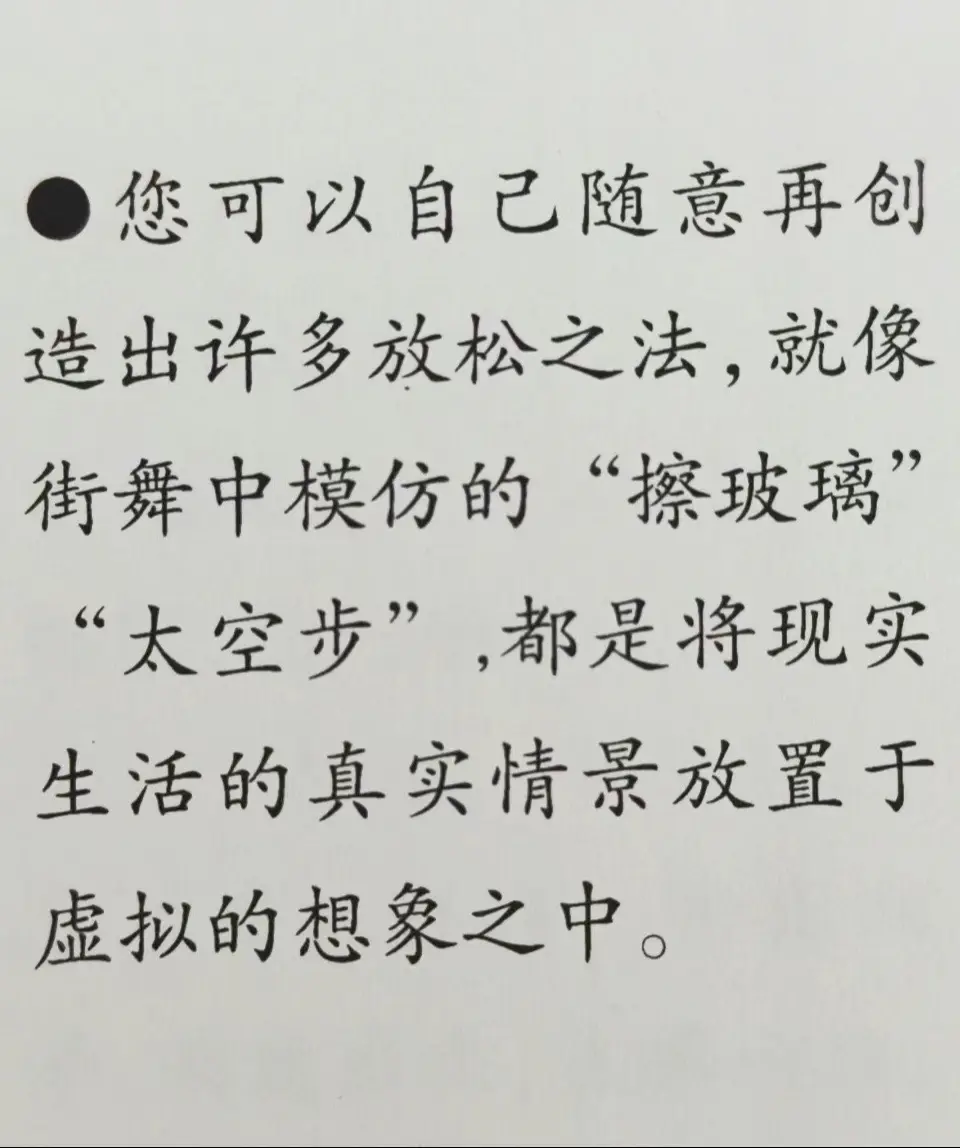 ●您可以自己随意再创
造出许多放松之法,就像
街舞中模仿的“擦玻璃”
“太空步”,都是将现实
生活的真实情景放置于
虚拟的想象之中。